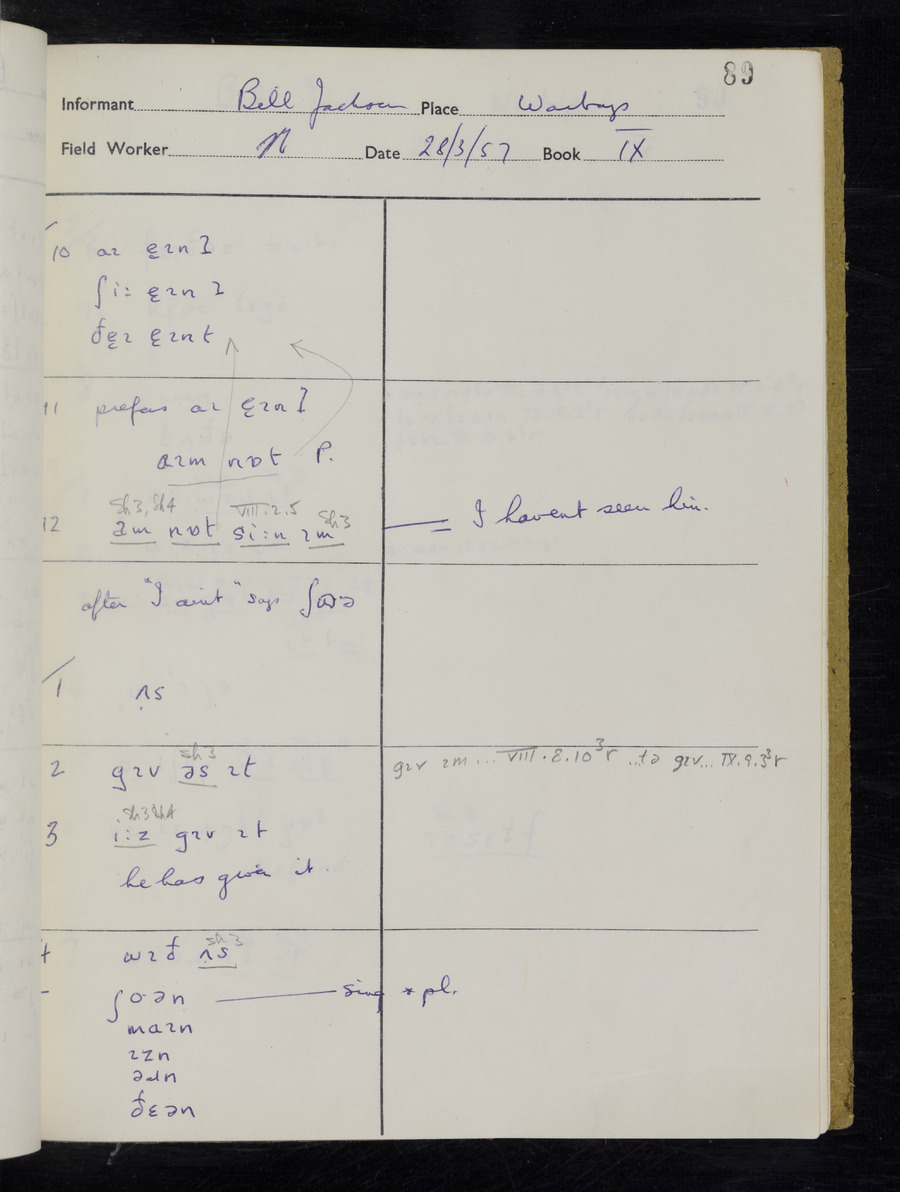 89
Informant Bill Jackson Place Warboys
Field Worker N Date 28/3/57 Book IX
10 aɪ ɛɪn
ʃiː ɛɪn
ðɛɪ ɛɪnt
11 prefers aɪ ɛɪn
aɪm nɒt P.
Sh3, Sh4 VIII.2.5 Sh3
12 am nɒt siːn ɪm = I havent seen him.
after "I aint" says ʃɷə
1 ʌs
Sh3
2 gɪv əs ɪt gɪv ɪm... VIII.8.10³r ..tə gɪv... IX.9.3³r
Sh3 Sh4
3 iːz gɪv ɪt
he has given it.
Sh3
4 wɪð ʌs
ʃoən sing + pl.
maɪn
ɪzn
əɹn
ðɛən